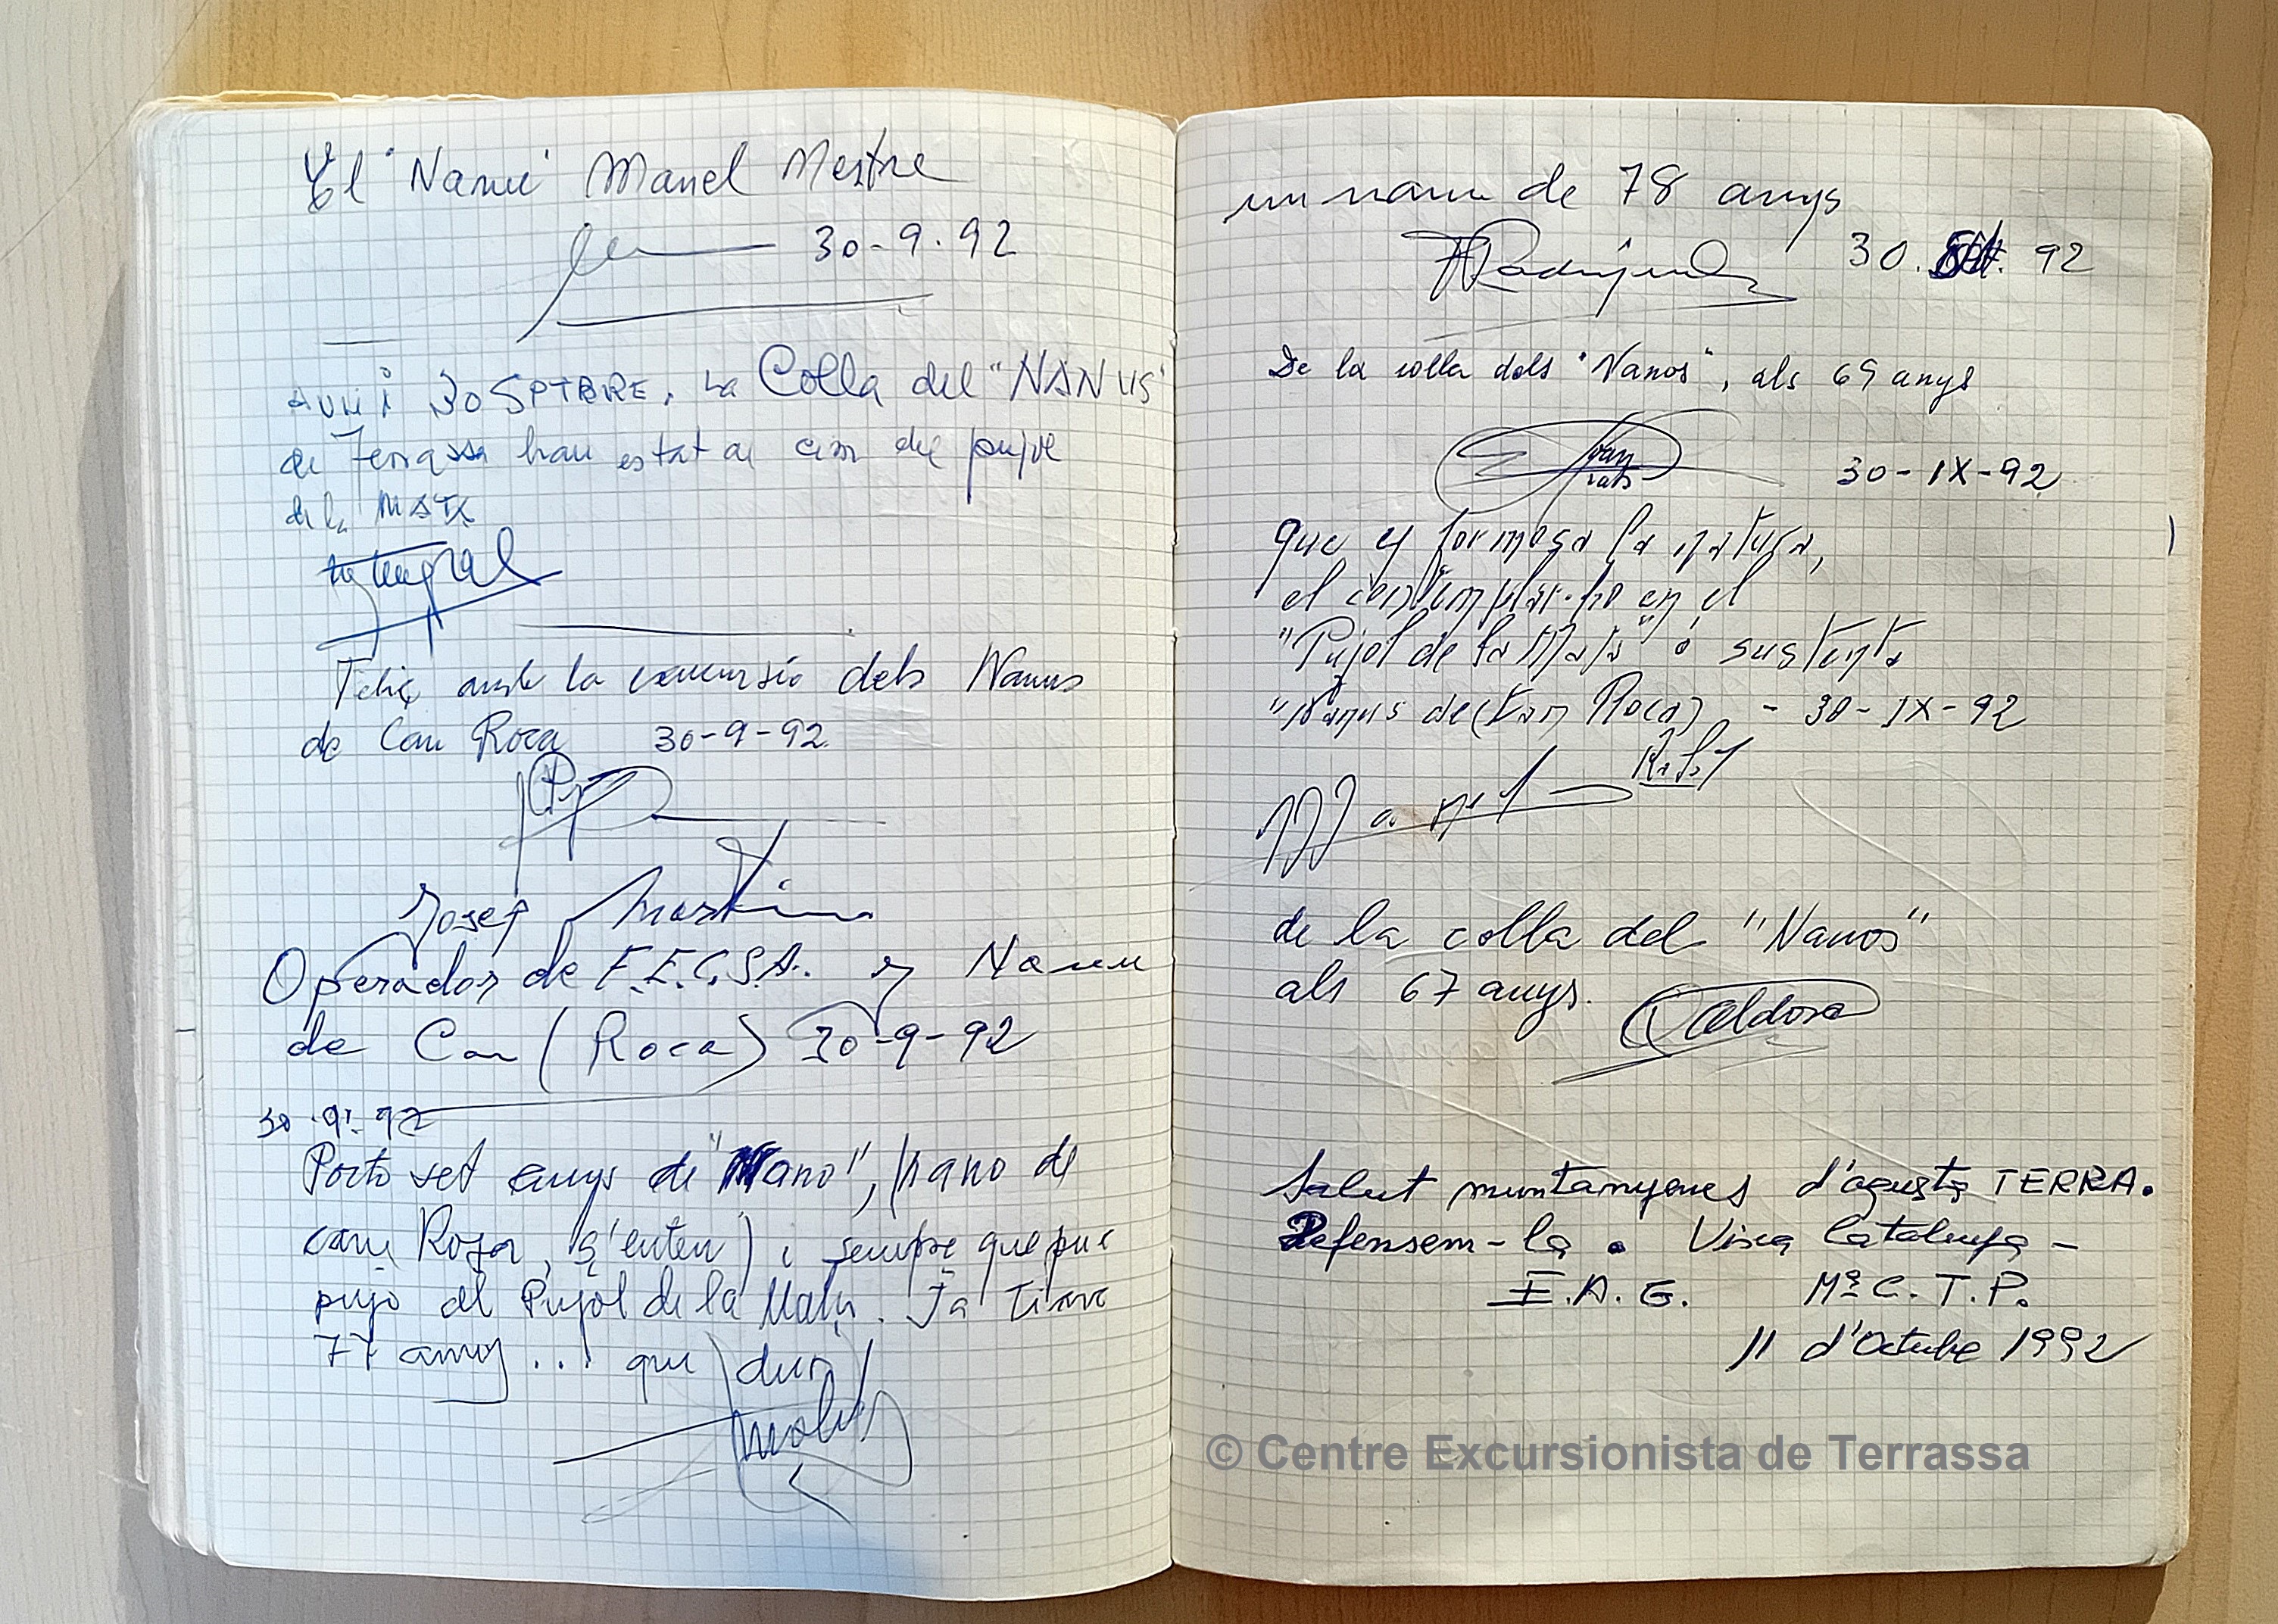 El "Nanu" Manel Mestre
30-9-92
Avui 30 SPTBRE, La Colla del "NANUS"
de Terrassa han estat al cim del pujol
de la MATA
Feliç amb la excursió dels Nanus
de Can Roca 30-9-92
Josep Martin
Operador de F.E.C.S.A. y Nanu
de Can (Roca) 30-9-92
30-9-92
Porto set anys de "Nano", (nano de
can Roca, s'enten) i sempre que puc
pujo al Pujol de la Mata. Ja tinc
77 anys... que duri
un nanu de 78 anys
30. 92
De la colla dels "Nanos", als 69 anys
Joan
30-IX-92
que es formosa la natura,
el contemplar-ho en el
"Pujol de la Mata" ó sustenta
"Nanus de (Can Roca) - 30-IX-92
Manel
de la colla del "Nanos"
als 67 anys.
Saldora
Salut muntanyenes d'aquesta TERRA.
Defensem-la. Visca Catalunya-
E.A.G. Mª C.T.P.
11 d'Octubre 1992
© Centre Excursionista de Terrassa